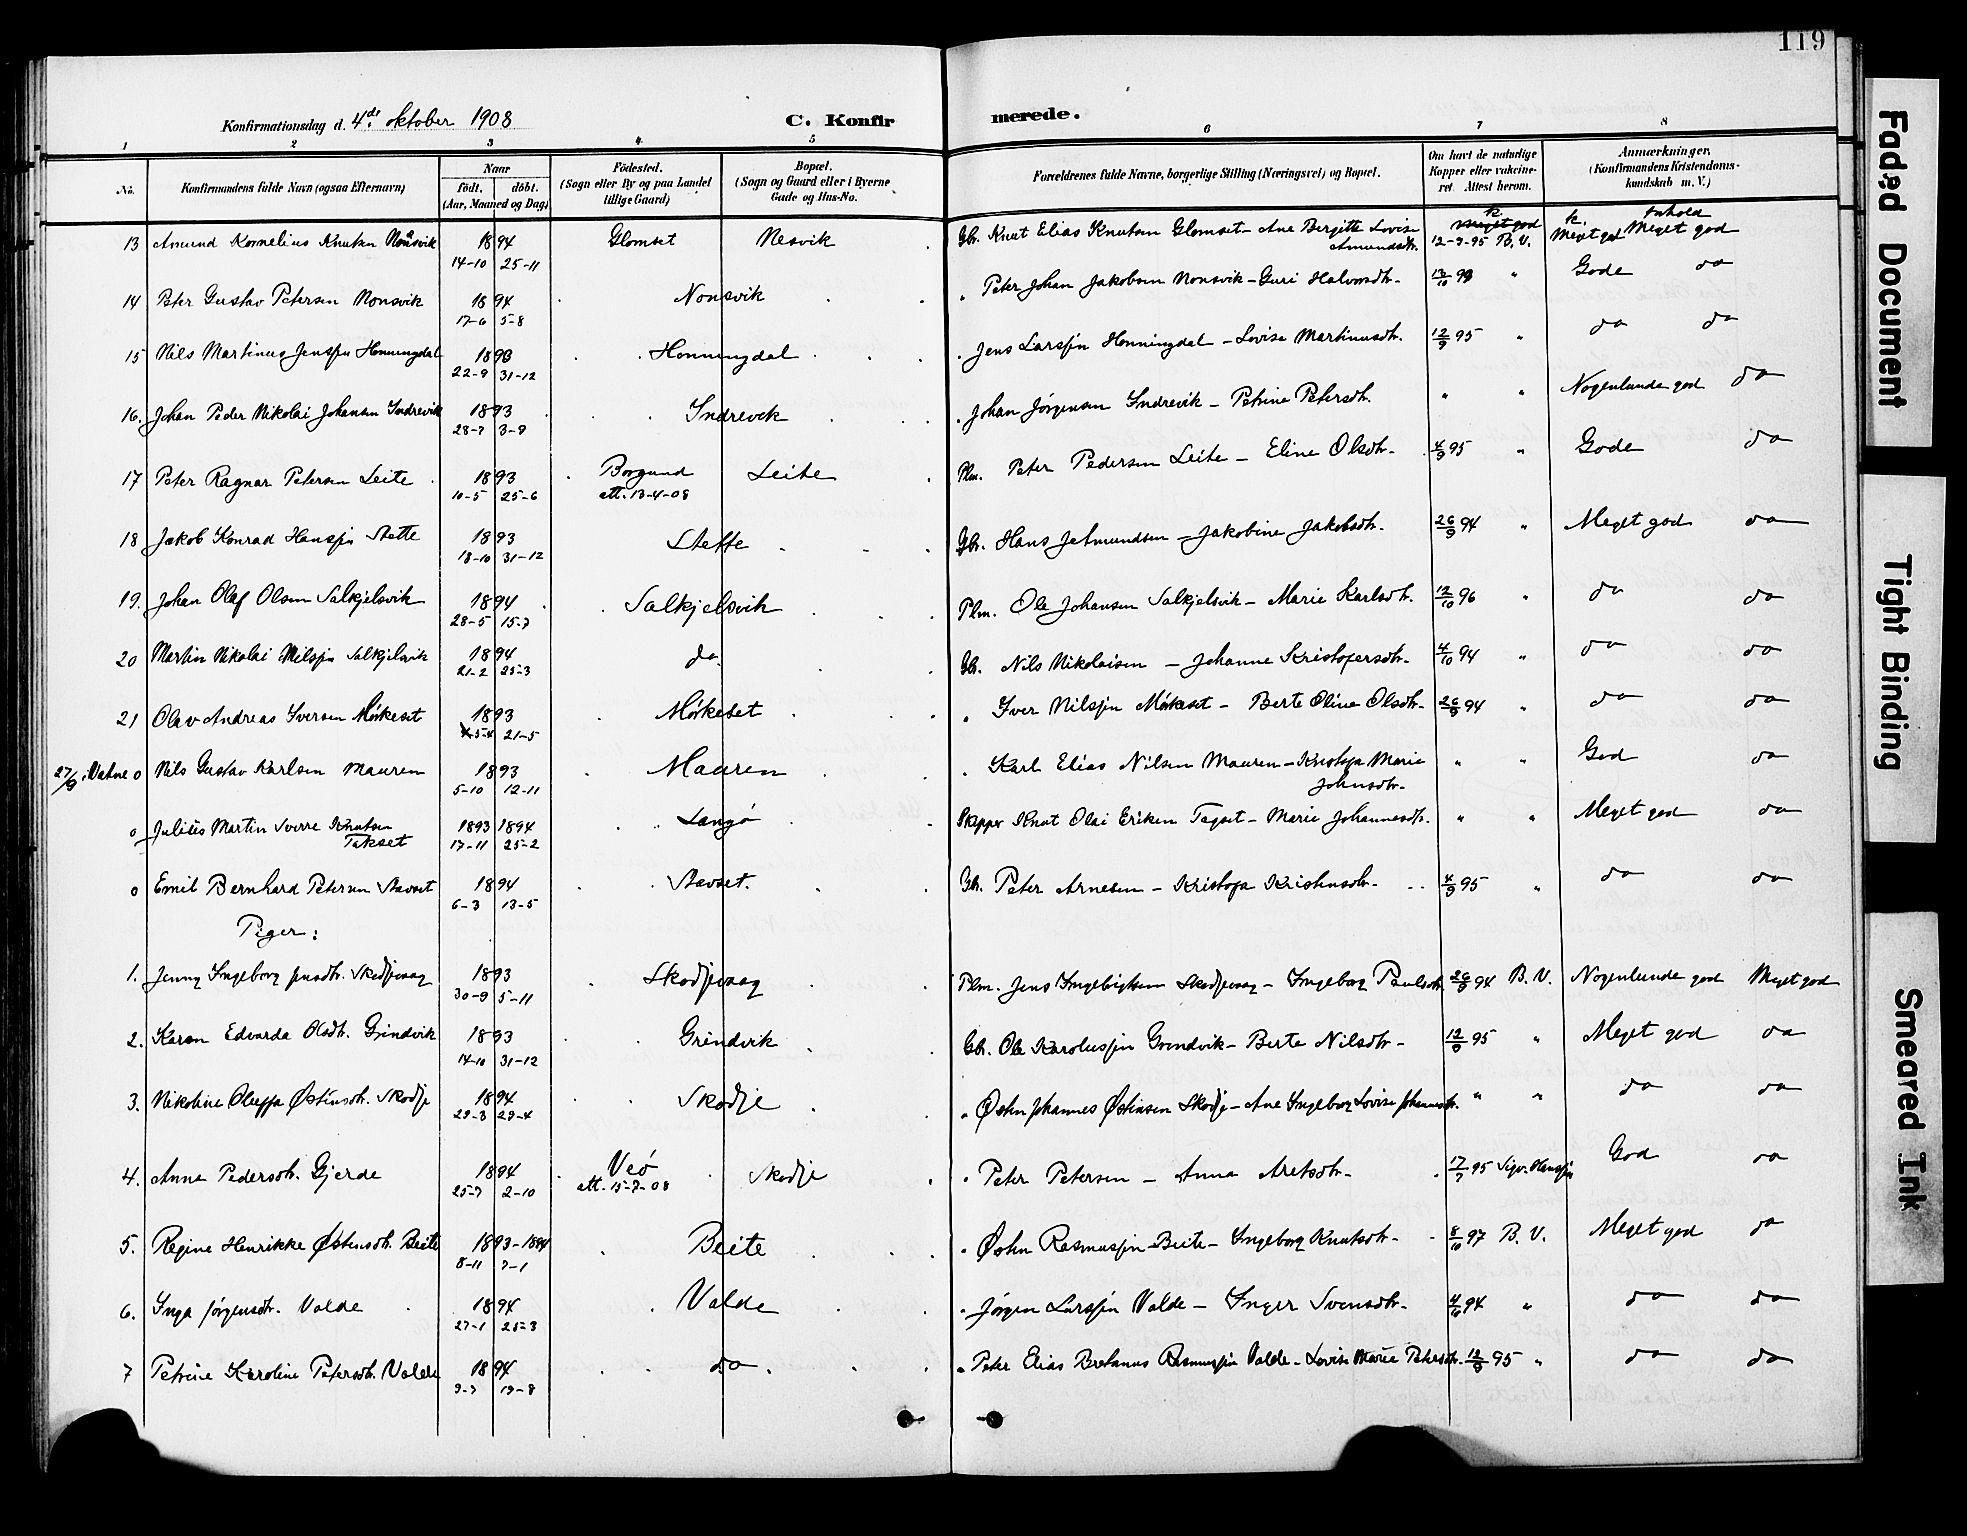 119
Konfirmationsdag d. 4de oktober 1908 C. Konfirmerede.
1 2 3 4 5 6 7 8
No. Konfirmandens fulde Navn (ogsaa Efternavn) Naar født. døbt. (Aar, Maaned og Dag) Fødested. (Sogn eller By og paa Landet tillige Gaard) Bopæl. (Sogn og Gaard eller i Byerne Gade og Hus-No. Forældrenes fulde Navne, borgerlige Stilling (Næringsvei) og Bopæl. Om havt de naturlige Kopper eller vakcineret. Attest herom. Anmærkninger. (Konfirmandens Kristendomskundskab m. V.)
k. Inhold
13 Amund Kornelius Knutsen 1894 14-10 25-11 Glomset Nesvik Gbr. Knut Elias Knutsen Glomset - Ane Birgitte Lovise Amundsdtr. 12-9-95 B. V. Meget god Meget god
14 Peter Gustav Petersen Nonsvik 1894 17-6 5-8 Nonsvik " Peter Johan Jakobsen Nonsvik - Guri Halvorsdtr. " Gode do
15 Nils Martinus Jenssen Honningdal 1893 22-9 31-12 Honningdal " Jens Larssen Honningdal - Lovise Martinusdtr. 12/9 95 " do do
16. Johan Peder Nikolai Johansen Indrevik 1893 28-7 3-9 Indrevik " Johan Jørgensen Indrevik - Petrine Petersdtr. " " Nogenlunde god do
17 Peter Ragnar Petersen Leite 1893 10-5 25-6 Borgund att. 13-4-08 Leite Plm. Peter Pedersen Leite - Eline Olsdtr. 4/9 95 " Gode do
18 Jakob Konrad Hanssen Stette 1893 18-10 31-12 Stette Gbr. Hans Jetmundsen - Jakobine Jakobsdtr. 26/9 94 " Meget god do
19. Johan Olaf Olsen Salkjelsvik 1894 28-5 15-7 Salkjelsvik Plm. Ole Johansen Salkjelsvik - Marie Karlsdtr. 12/10 96 " do do
20 Martin Nikolai Nilssen Salkjelsvik 1894 21-2 25-3 do. Gbr. Nils Nikolaisen - Johanne Kristofersdtr. 4/10 94 " do do
21 Olav Andreas Iversen Mørkeset 1893 21-5 Mørkeset " Iver Nilssen Mørkeset - Berte Oline Olsdtr. 26/9 94 " do do
27/9 i Vatne o Nils Gustav Karlsen Mauren 1893 5-10 12-11 Mauren " Karl Elias Nilsen Mauren - Kristofa Marie Johnsdtr. " " God do
o Julius Martin Sverre Knutsen Takset 1893 1894 17-11 25-2 Langø Skipper Knut Olai Eriksen Tagset - Marie Johannesdtr. " " Meget god do
o Emil Bernhard Petersen Stavset 1894 6-3 13-5 Stavset. Gbr. Peter Arnesen - Kristofa Kristensdtr. 4/9 95 " do do
Piger:
1. Jenny Ingeborg Jensdtr. Skodjevaag 1893 30-9 5-11 Skodjevaag Plm. Jens Ingebrigtsen Skodjevaag - Ingeborg Paulsdtr. 26/9 94 B. V. Nogenlunde god Meget god
2. Karen Edvarda Olsdtr. Grindvik 1893 14-10 31-12 Grindvik Gbr. Ole Karolussen Grindvik - Berte Nilsdtr. 12/9 95 " Meget god do
3. Nikoline Oluffa Østensdtr. Skodje 1894 29-3 29-4 Skodje " Østen Johannes Østensen Skodje - Ane Ingeborg Lovise Johannesdtr. " " do do
4. Anne Pedersdtr. Gjerde 1894 25-7 2-10 Veø att. 15-7-08 Skodje " Peter Petersen - Anna Aretsdtr. 17/7 95 Sigv. Hanssen God do
5. Regine Henrikke Østensdtr. Beite 1893-1894 8-11 7-1 Beite " Østen Rasmussen Beite - Ingeborg Knutsdtr. 8/10 97 B. V. Meget god do
6. Inga Jørgensdtr. Valde 1894 27-1 25-3 Valde " Jørgen Larssen Valde - Inger Svensdtr. 4/10 94 " do do
7 Petrine Karoline Petersdtr. Valde 1894 19-8 do. " Peter Elias Bretanus Rasmussen Valde - Lovise Marie Petersdtr. 12/9 95 " do do
Faded Document
Tight Binding
Smeared Ink